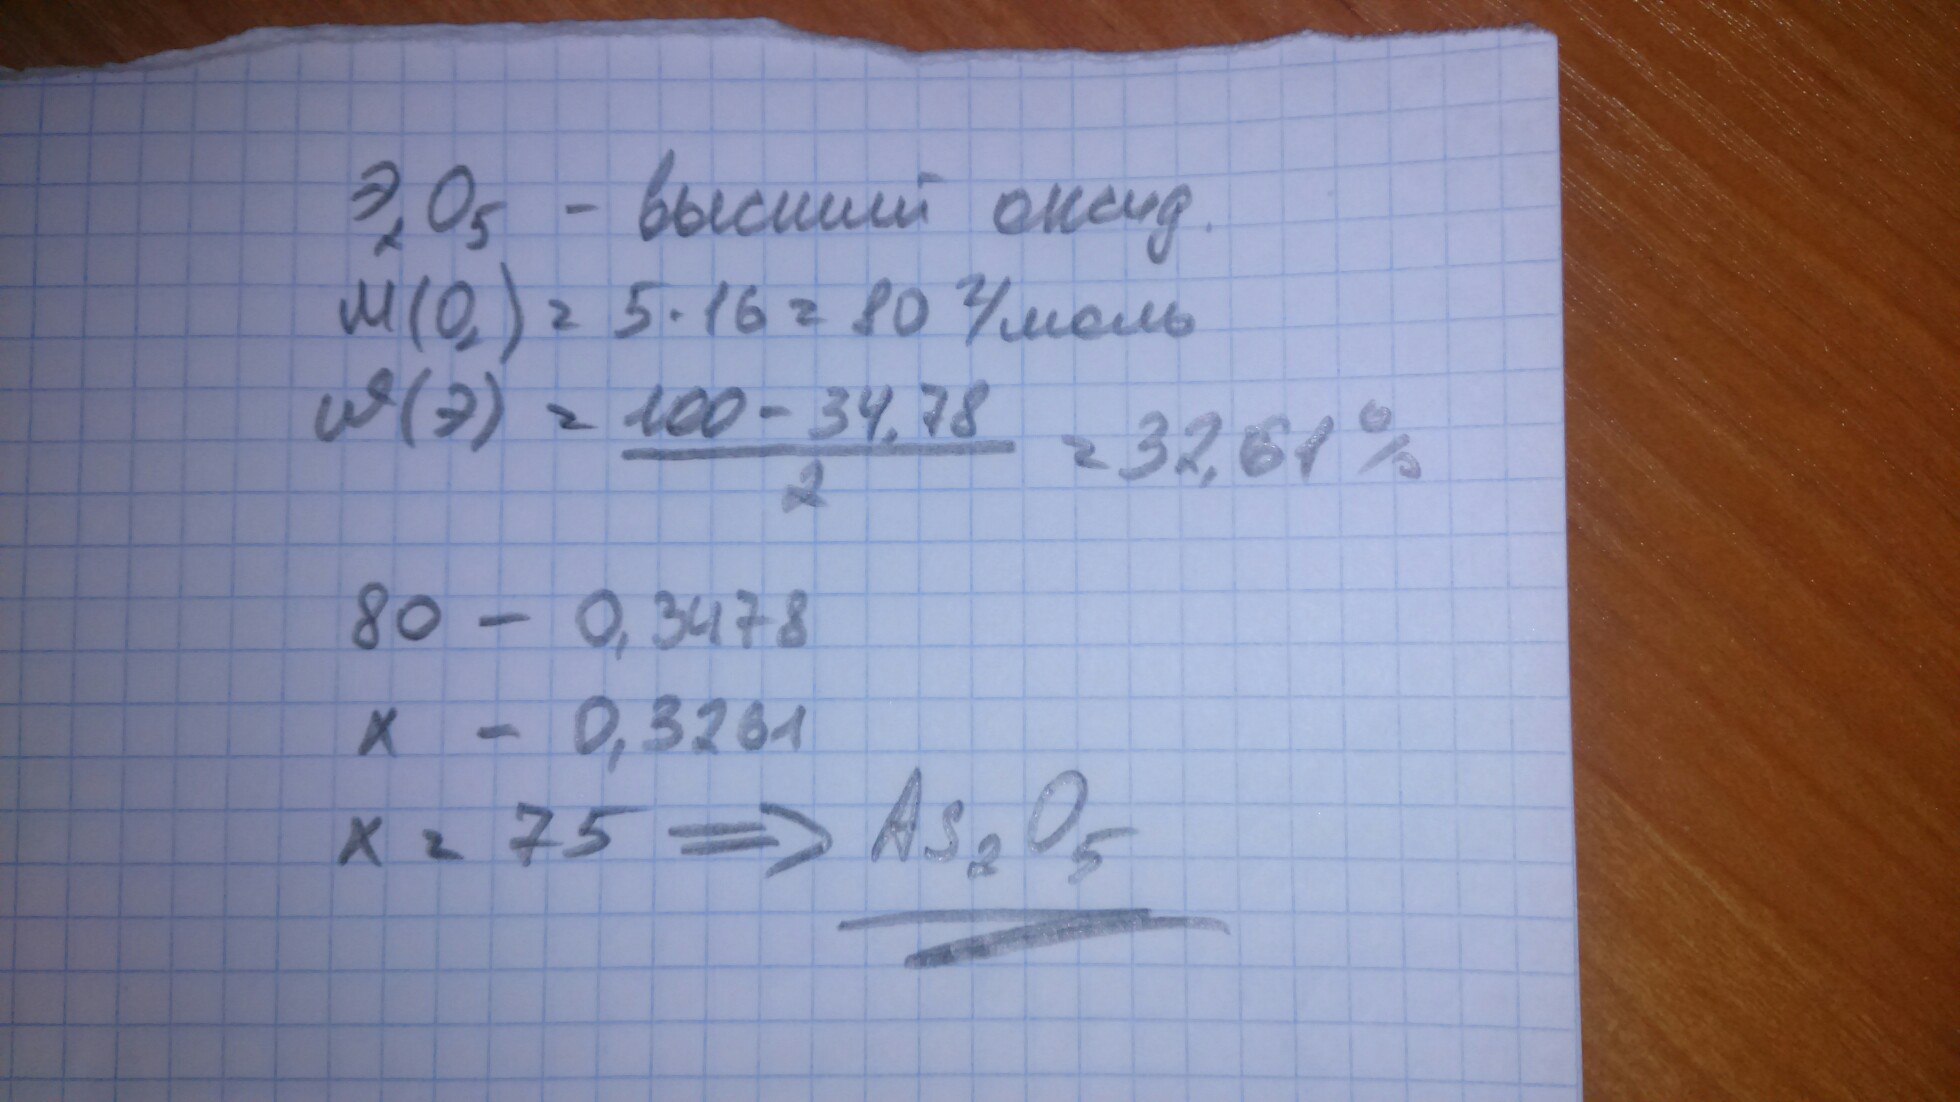 Э₂O₅ - высший оксид.
M(O₂) = 5·16 = 80 г/моль
ω(Э) = (100 - 34,78)/2 = 32,61%
80 - 0,3478
x - 0,3261
x = 75 ⇒ As₂O₅